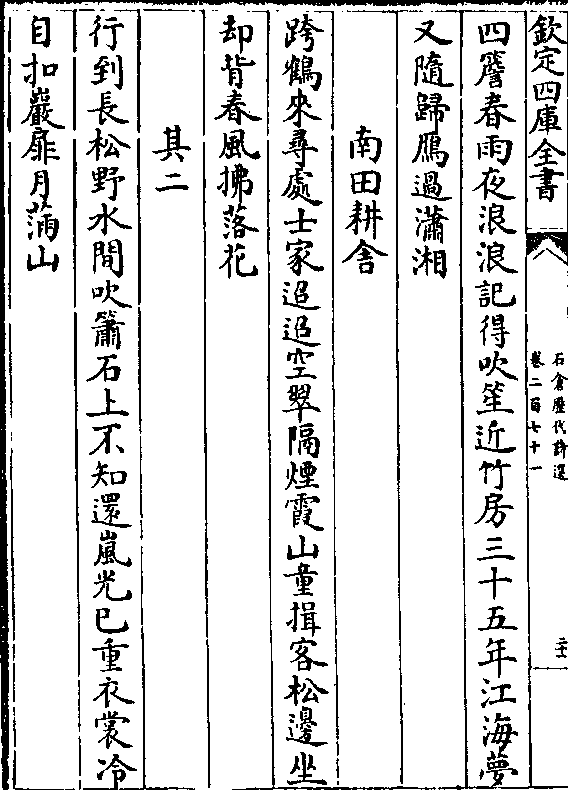 欽定四庫全書
石倉歷代詩選
卷二百七十一
四簷春雨夜浪浪記得吹笙近竹房三十五年江海夢
又隨歸鴈過瀟湘
南田耕舍
跨鶴來尋處士家迢迢空翠隔煙霞山童揖客松邊坐
却背春風拂落花
其二
行到長松野水間吹簫石上不知還嵐光已重衣裳冷
自扣巖扉月滿山